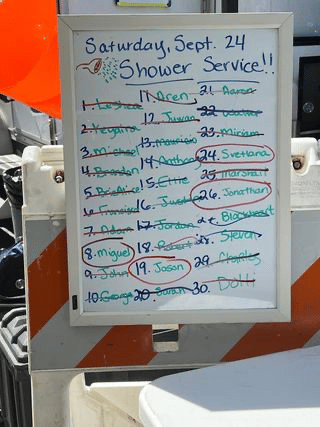 Saturday, Sept. 24
Shower Service!!
1. Leshea
2. Keyana
3. Michael
4. Brandon
5. Bre
6.
7. Adam
8. Miguel
9. John
10. George
11. Aren
12. Juwan
13. Mauricio
14. Anthony
15. Ellie
16.
17. Jordan
18. Robert
19. Jason
20. Sarah
21. Aaron
22. Walter
23. Miriam
24. Svetlana
25. Marshall
26. Jonathan
27. Blackheart
28. Steven
29. Charles
30. Dotti